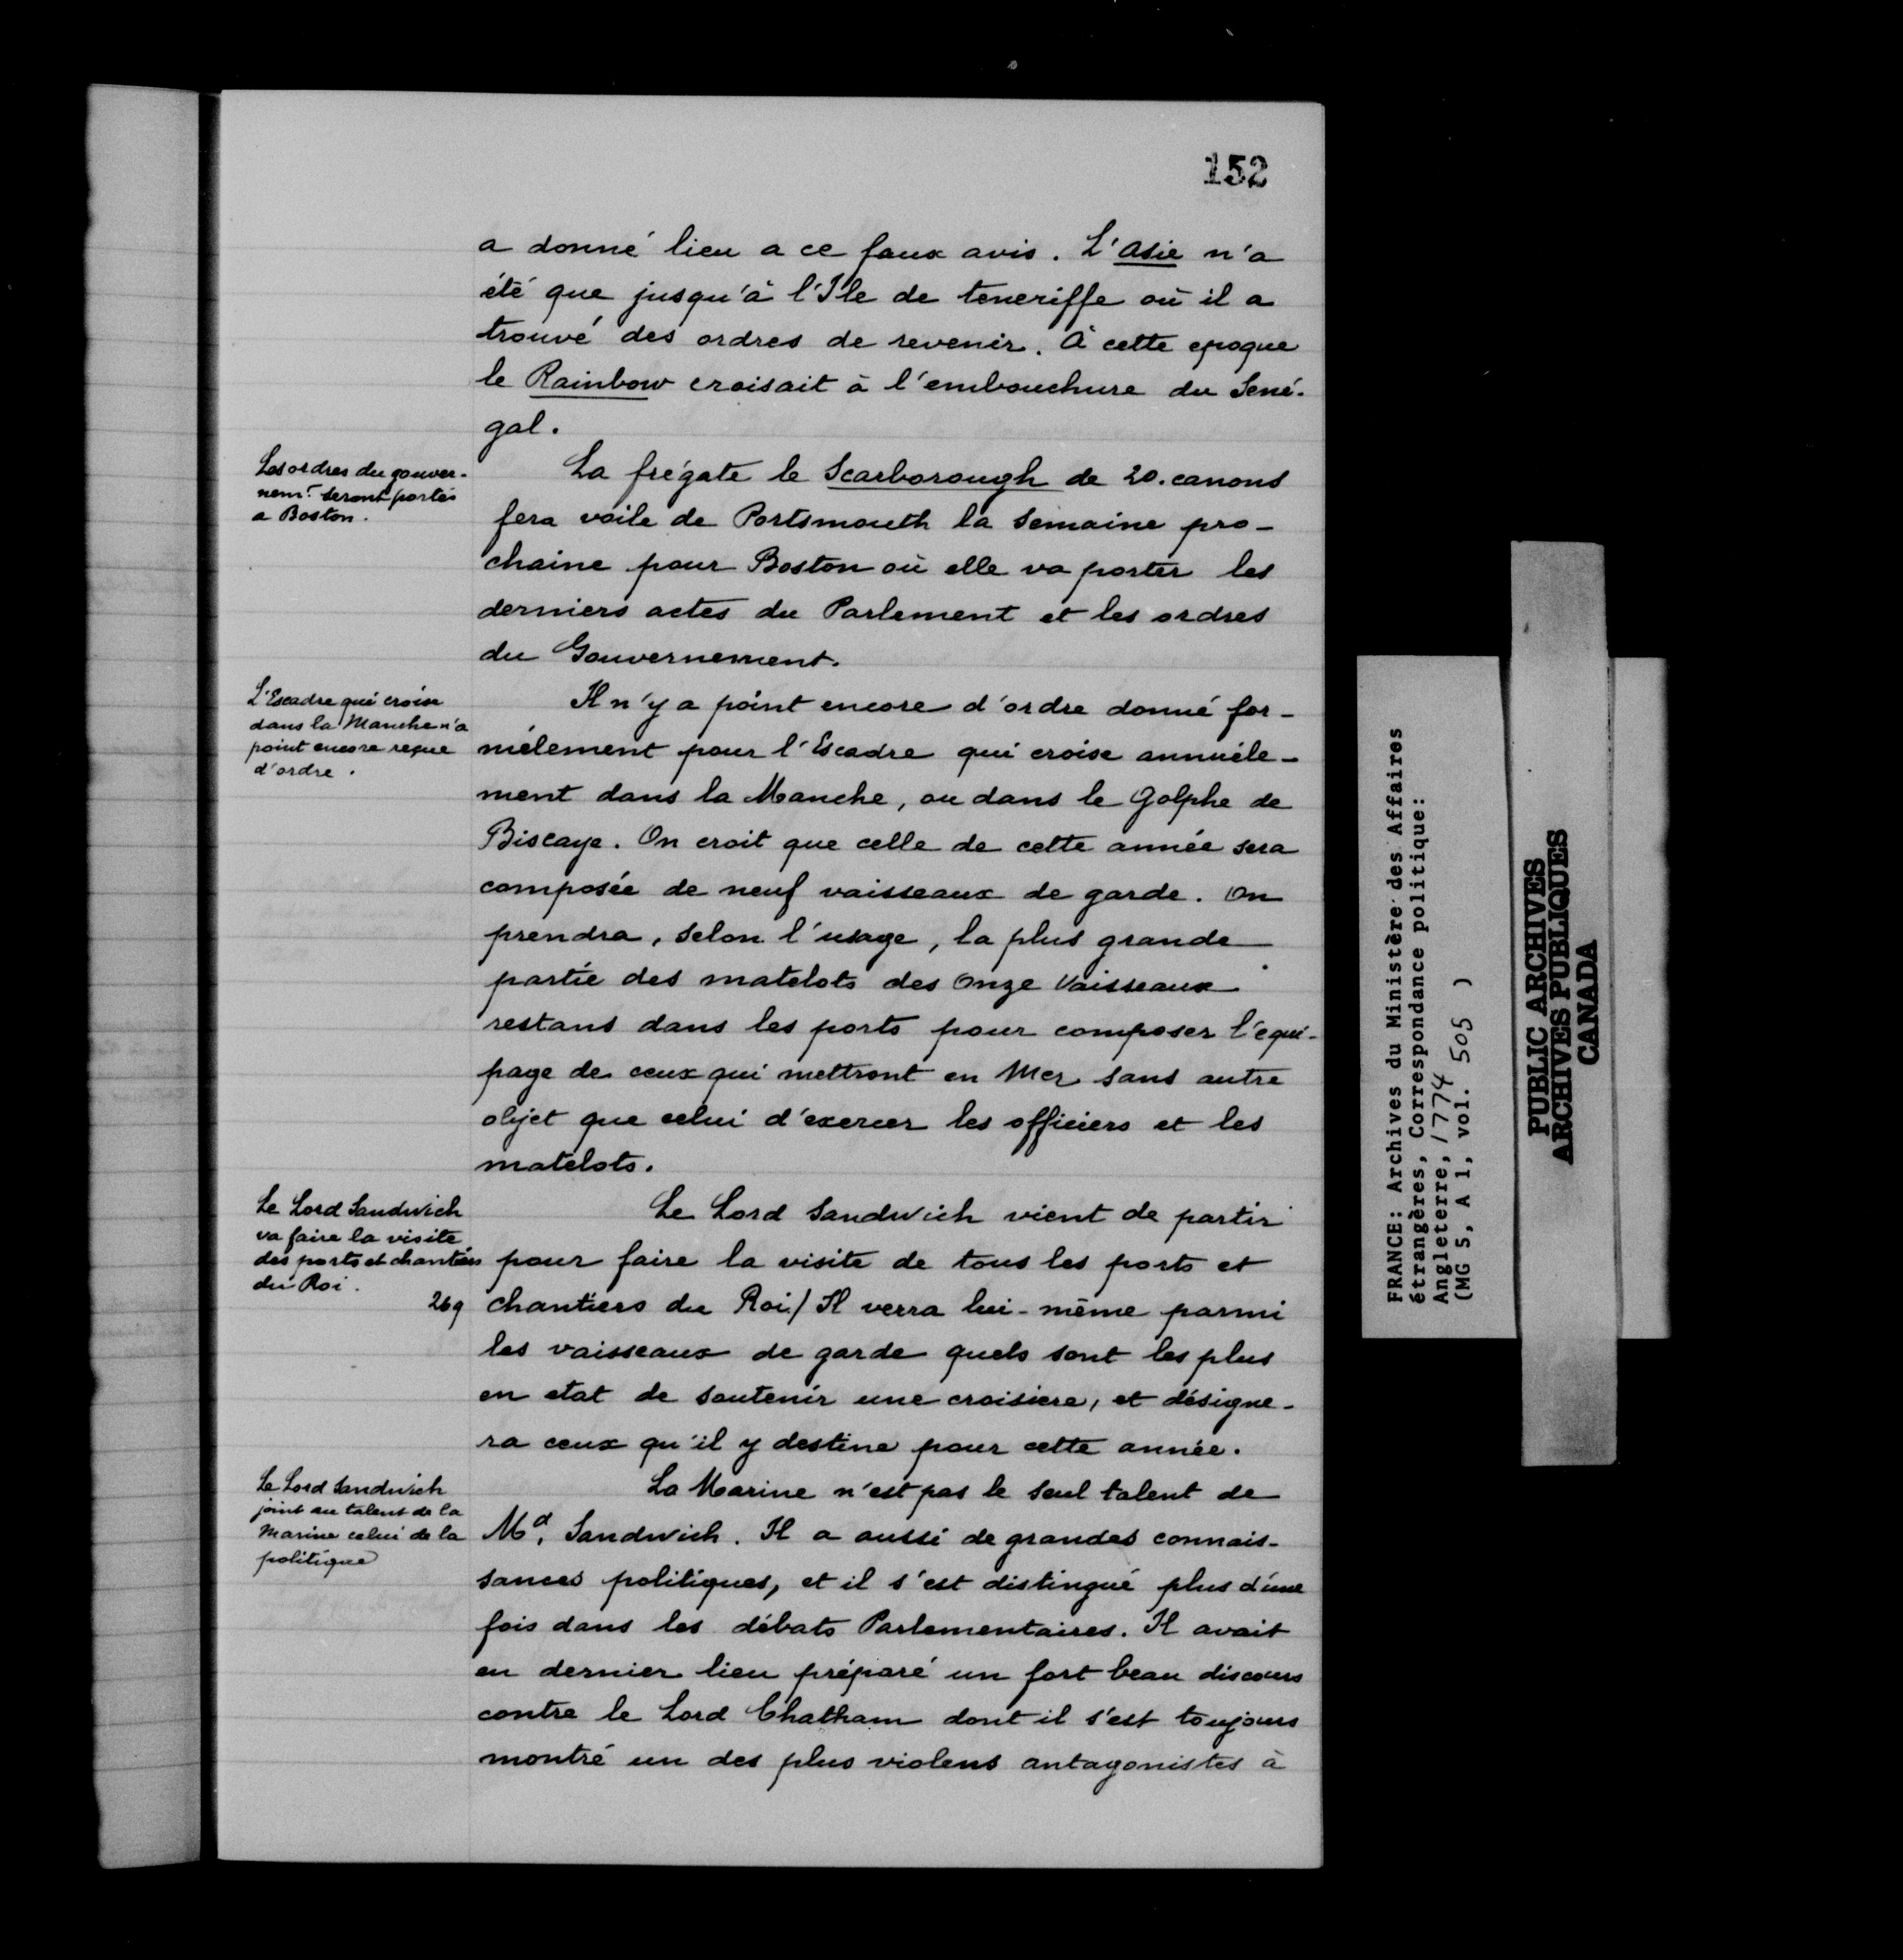 152
a donné lieu a ce faux avis. L'Asie n'a
été que jusqu'à l'Ile de teneriffe où il a
trouvé des ordres de revenir. À cette epoque
le Rainbow croisait à l'embouchure du Sené-
gal.
Les ordres du gouver-
nemt. seront portés
a Boston.
La frégate le Scarborough de 20. canons
fera voile de Portsmouth la semaine pro-
chaine pour Boston où elle va porter les
derniers actes du Parlement et les ordres
du Gouvernement.
L'Escadre qui croise
dans la Manche n'a
point encore reçue
d'ordre.
Il n'y a point encore d'ordre donné for-
mélement pour l'Escadre qui croise annuéle-
ment dans la Manche, ou dans le Golphe de
Biscaye. On croit que celle de cette année sera
composée de neuf vaisseaux de garde. On
prendra, selon l'usage, la plus grande
partie des matelots des onze Vaisseaux
restans dans les ports pour composer l'equi-
page de ceux qui mettront en Mer sans autre
objet que celui d'exercer les officiers et les
matelots.
Le Lord Sandwich
va faire la visite
des ports et chantiers
du Roi.
Le Lord Sandwich vient de partir
pour faire la visite de tous les ports et
269
chantiers du Roi./ Il verra lui-même parmi
les vaisseaux de garde quels sont les plus
en etat de soutenir une croisiere, et désigne-
ra ceux qu'il y destine pour cette année.
Le Lord Sandwich
joint au talent de la
Marine celui de la
politique
La Marine n'est pas le seul talent de
Md. Sandwich. Il a aussi de grandes connais-
sances politiques, et il s'est distingué plus d'une
fois dans les débats Parlementaires. Il avait
en dernier lieu préparé un fort beau discours
contre le Lord Chatham dont il s'est toujours
montré un des plus violens antagonistes à
FRANCE: Archives du Ministère des Affaires
étrangères, Correspondance politique:
Angleterre, 1774
(MG 5, A 1, vol. 505 )
PUBLIC ARCHIVES
ARCHIVES PUBLIQUES
CANADA